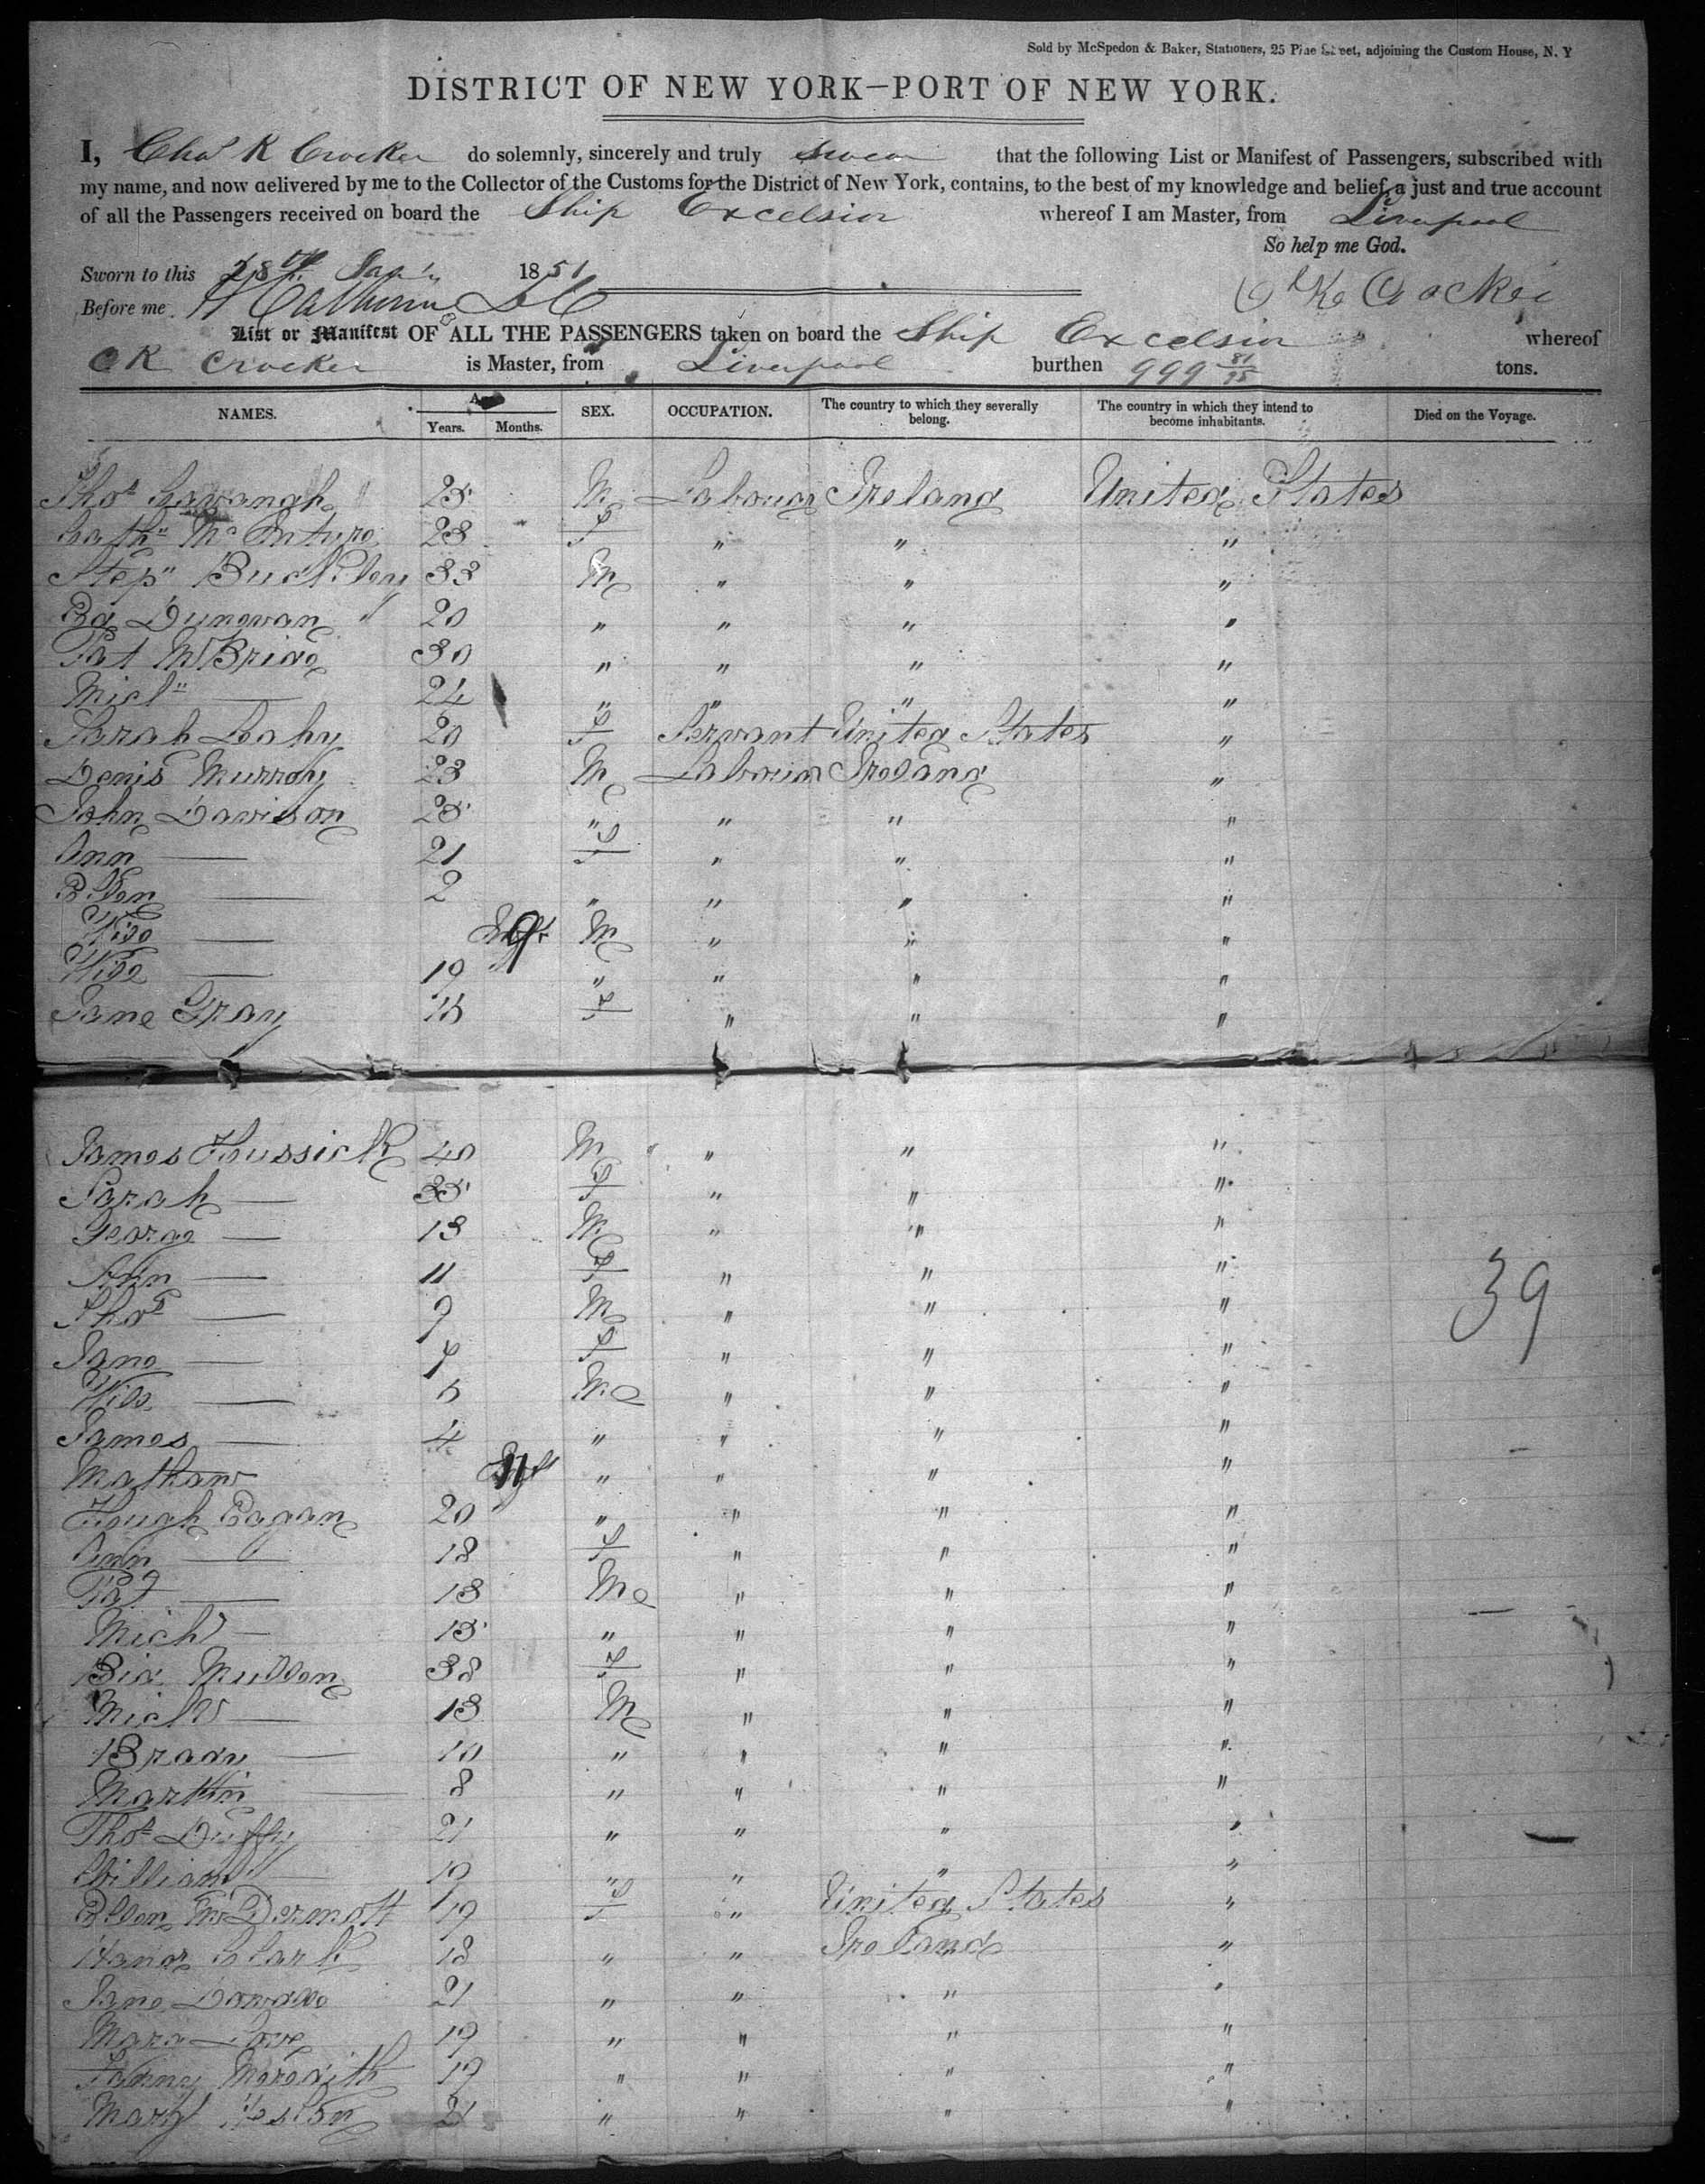 Sold by McSpedon & Baker, Stationers, 25 Pine Street, adjoining the Custom House, N. Y
DISTRICT OF NEW YORK—PORT OF NEW YORK.
I, Chas K Crocker do solemnly, sincerely and truly swear that the following List or Manifest of Passengers, subscribed with
my name, and now delivered by me to the Collector of the Customs for the District of New York, contains, to the best of my knowledge and belief, a just and true account
of all the Passengers received on board the Ship Excelsior whereof I am Master, from Liverpool
So help me God.
Sworn to this 28th 1851
Before me
List or Manifest OF ALL THE PASSENGERS taken on board the Ship Excelsior whereof
C K Crocker is Master, from Liverpool burthen 999 81/95 tons.
NAMES. Years. Months. SEX. OCCUPATION. The country to which they severally belong. The country in which they intend to become inhabitants. Died on the Voyage.
Thos Cavanagh 25 M Labourer Ireland United States
Cathn McIntyre 23 F " " "
Stepn Buckley 33 M " " "
Donovan 20 " " " "
Pat McBride 30 " " " "
Micl — 24 " " " "
Sarah Leahy 20 F Servant United States "
Denis Murray 23 M Labourer Ireland "
John Davison 25 " " " "
Ann — 21 F " " "
Ellen — 2 " " " "
— 9 M " " "
— 19 " " " "
Jane Gray 15 F " " "
James Hussick 40 M " " "
Sarah — 35 F " " "
George — 13 M " " "
Ann — 11 F " " "
Thos — 9 M " " "
Jane — 7 F " " "
Will — 5 M " " "
James — 4 " " " "
Mathew 11 " " " "
Hough Eagan 20 " " " "
Ann — 18 F " " "
Pat — 13 M " " "
Michl — 15 " " " "
Bid Mullen 38 F " " "
Michl — 13 M " " "
Brady — 10 " " " "
Martin — 8 " " " "
Thos Duffy 21 " " " "
William — 19 " " " "
Ellen McDermott 19 F " United States "
Hanor Clark 18 " " Ireland "
Jane 21 " " " "
Mara 19 " " " "
Fanny Meredith 19 " " " "
Mary 21 " " " "
39